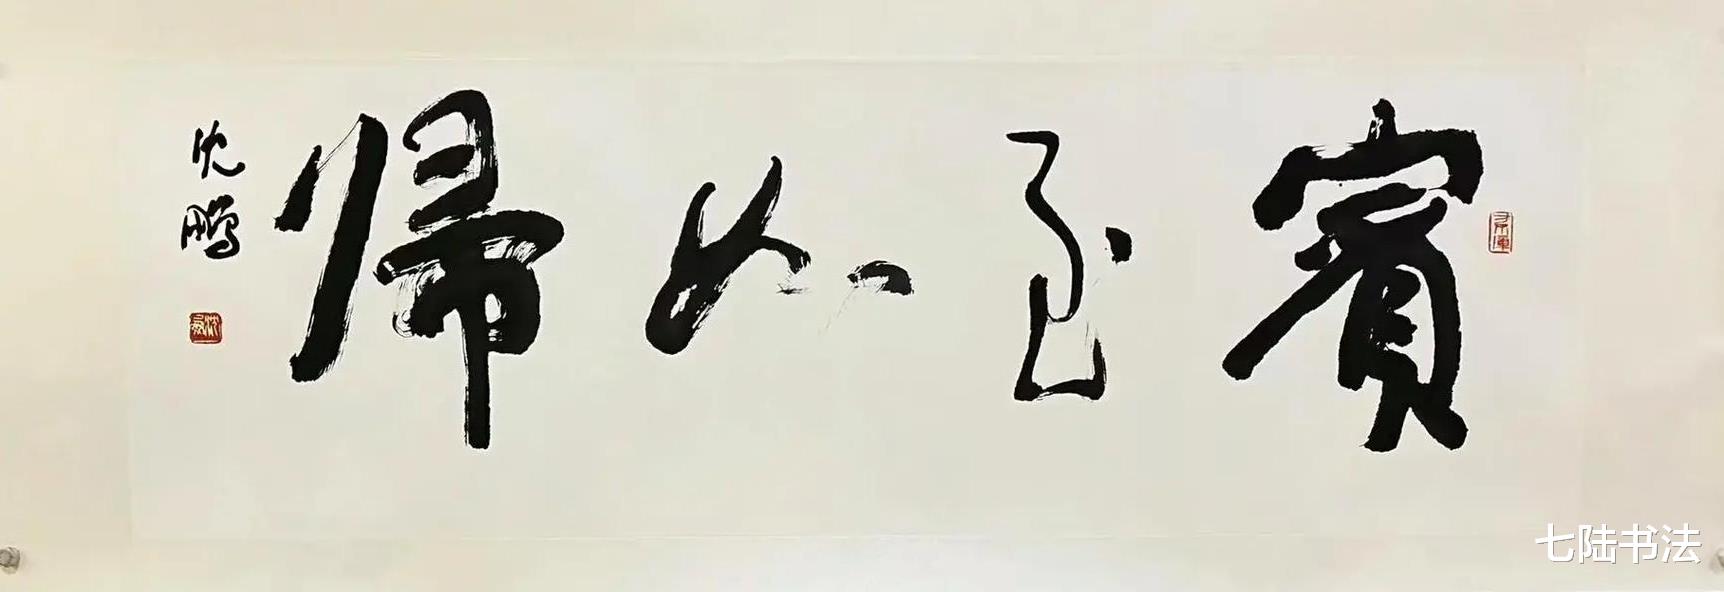 賓至如歸
沈鹏
七陆书法